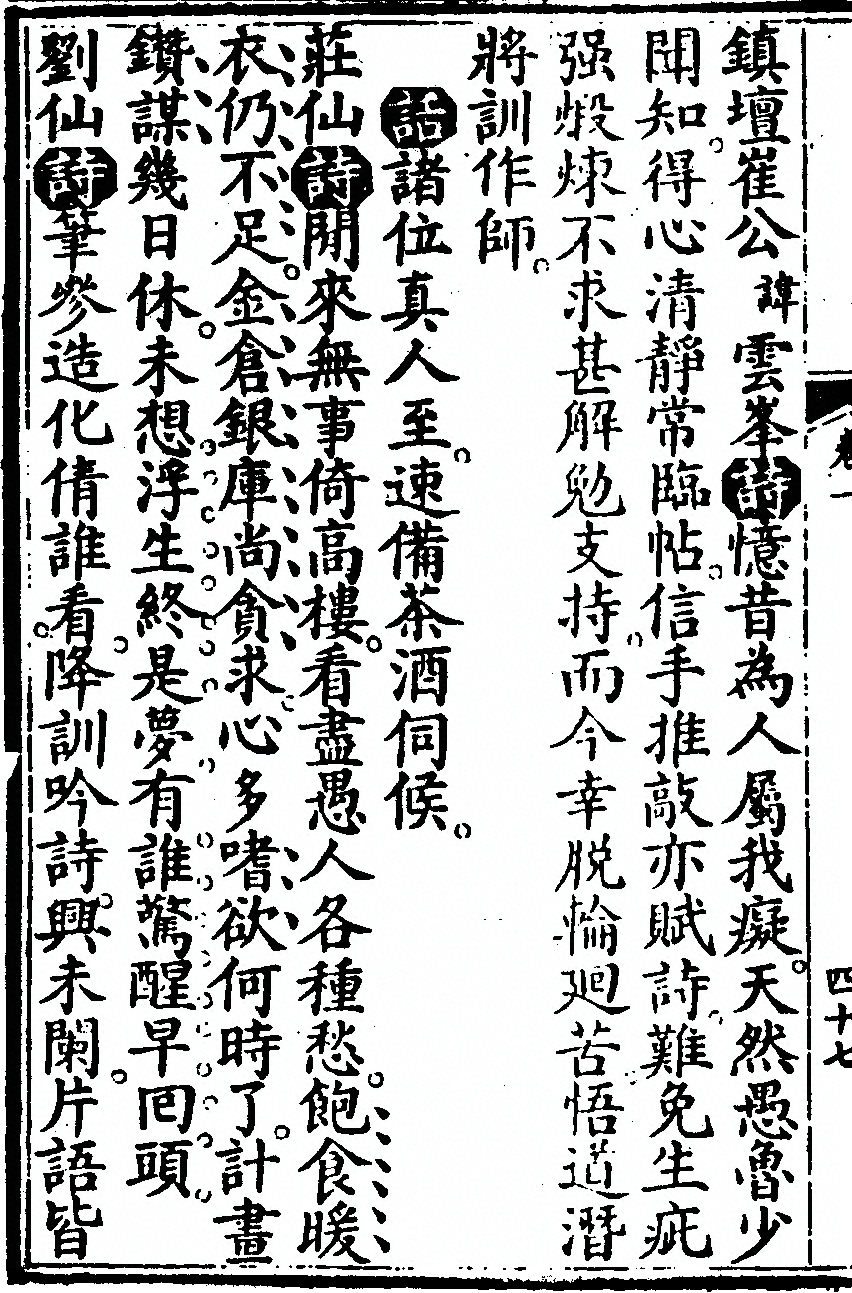 卷一
四十七
鎮壇崔公諱雲峯詩憶昔為人屬我癡天然愚魯少
聞知得心清靜常臨帖信手推敲亦賦詩難免生疵
强煅煉不求甚解勉支持而今幸脱輪廻苦悟道潛
將訓作師
話諸位真人至速備茶酒伺候
莊仙詩閒來無事倚高樓看盡愚人各種愁飽食暖
衣仍不足金倉銀庫尚貪求心多嗜欲何時了計畫
鑽謀幾日休未想浮生終是夢有誰驚醒早囘頭
劉仙詩筆參造化倩誰看降訓吟詩興未闌片語皆